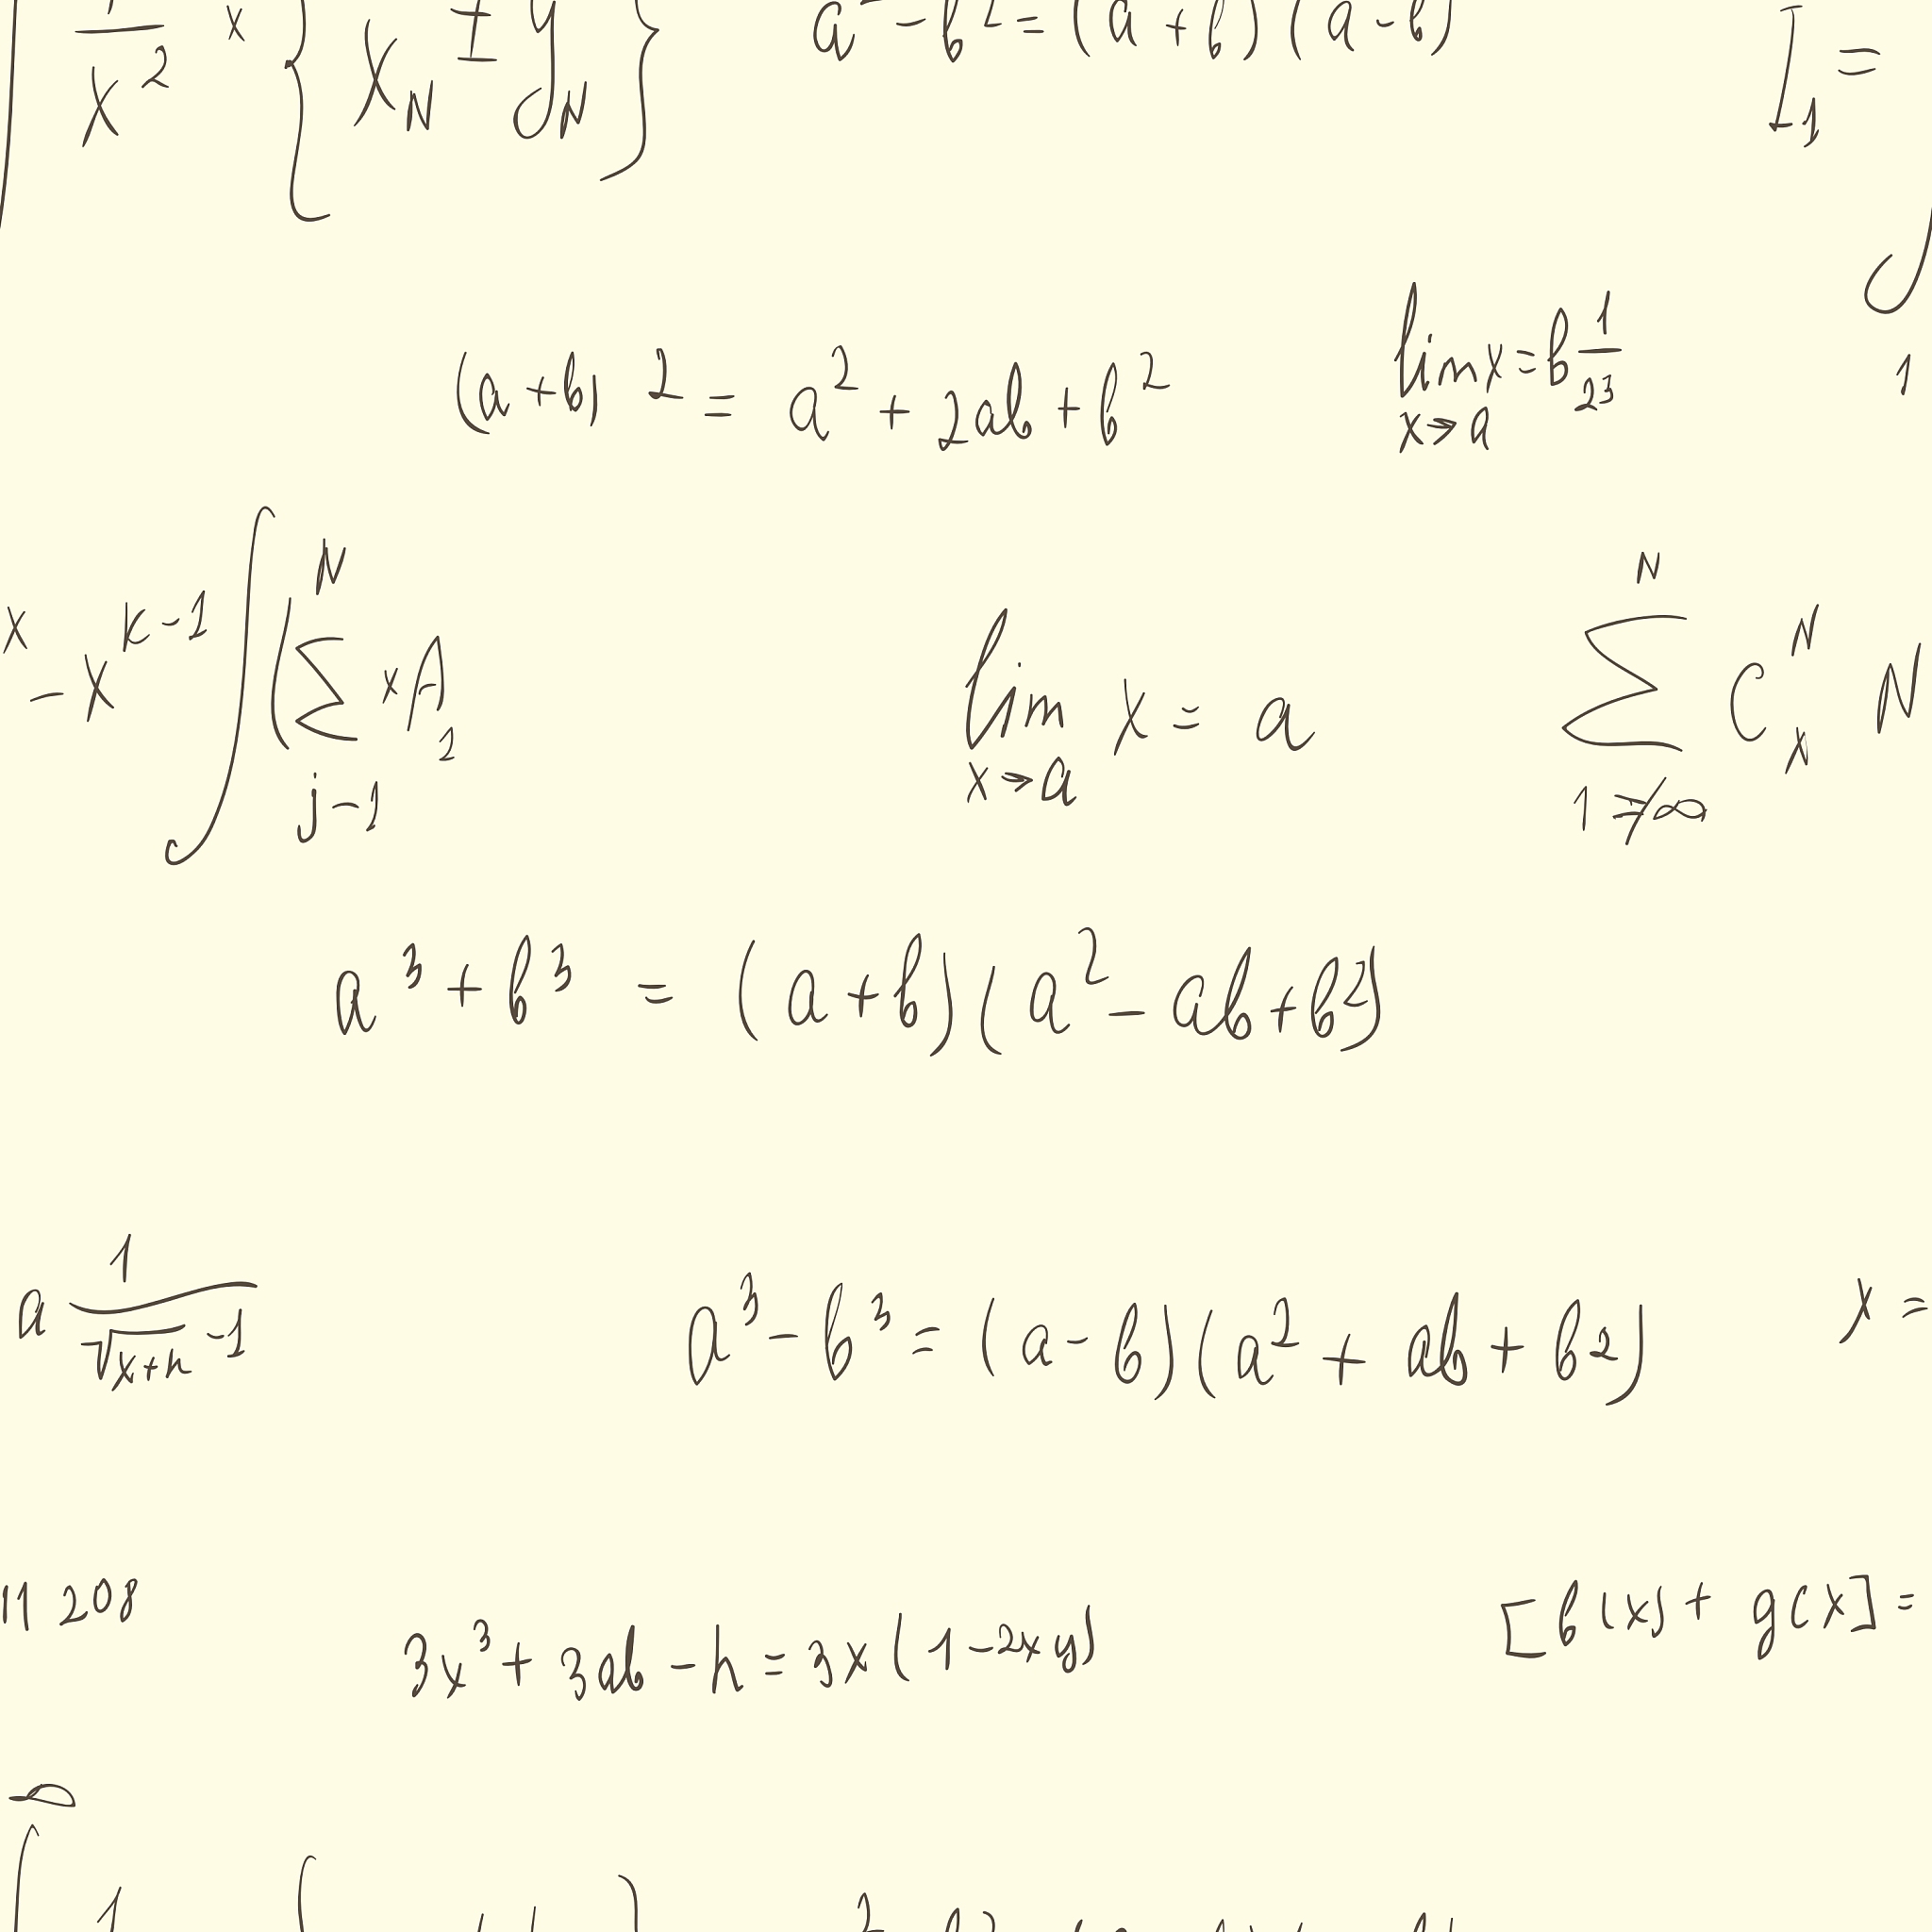 1/x² x { x_N ± y_N }
a² - b² = (a + b)(a - b)
I₁ =
(a + b)² = a² + 2ab + b²
lim x→a x = b 1/23
1
x
- x^(k-1) ∫ ( Σ N j-1 x A₁
lim x→a x = a
Σ N 1→∞ C N x N
a³ + b³ = (a + b)(a² - ab + b²)
a 1/√x+h -1
a³ - b³ = (a - b)(a² + ab + b²)
x =
11 208
3x³ + 3ab - h = 3x(1 - 2xy)
[b(x) + g(x] =